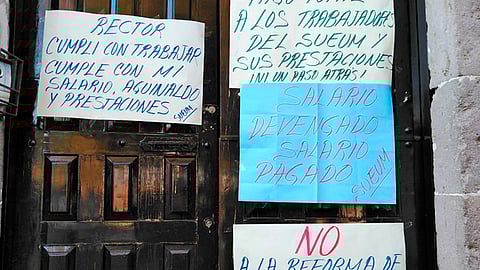 RECTOR
CUMPLI CON TRABAJAR
CUMPLE CON MI
SALARIO, AGUINALDO
Y PRESTACIONES
SUEUM
A LOS TRABAJADORAS
DEL SUEUM Y
SUS PRESTACIONES
¡NI UN PASO ATRAS!
SALARIO
DEVENGADO
SALARIO
PAGADO
SUEUM
NO
A LA REFORMA DE